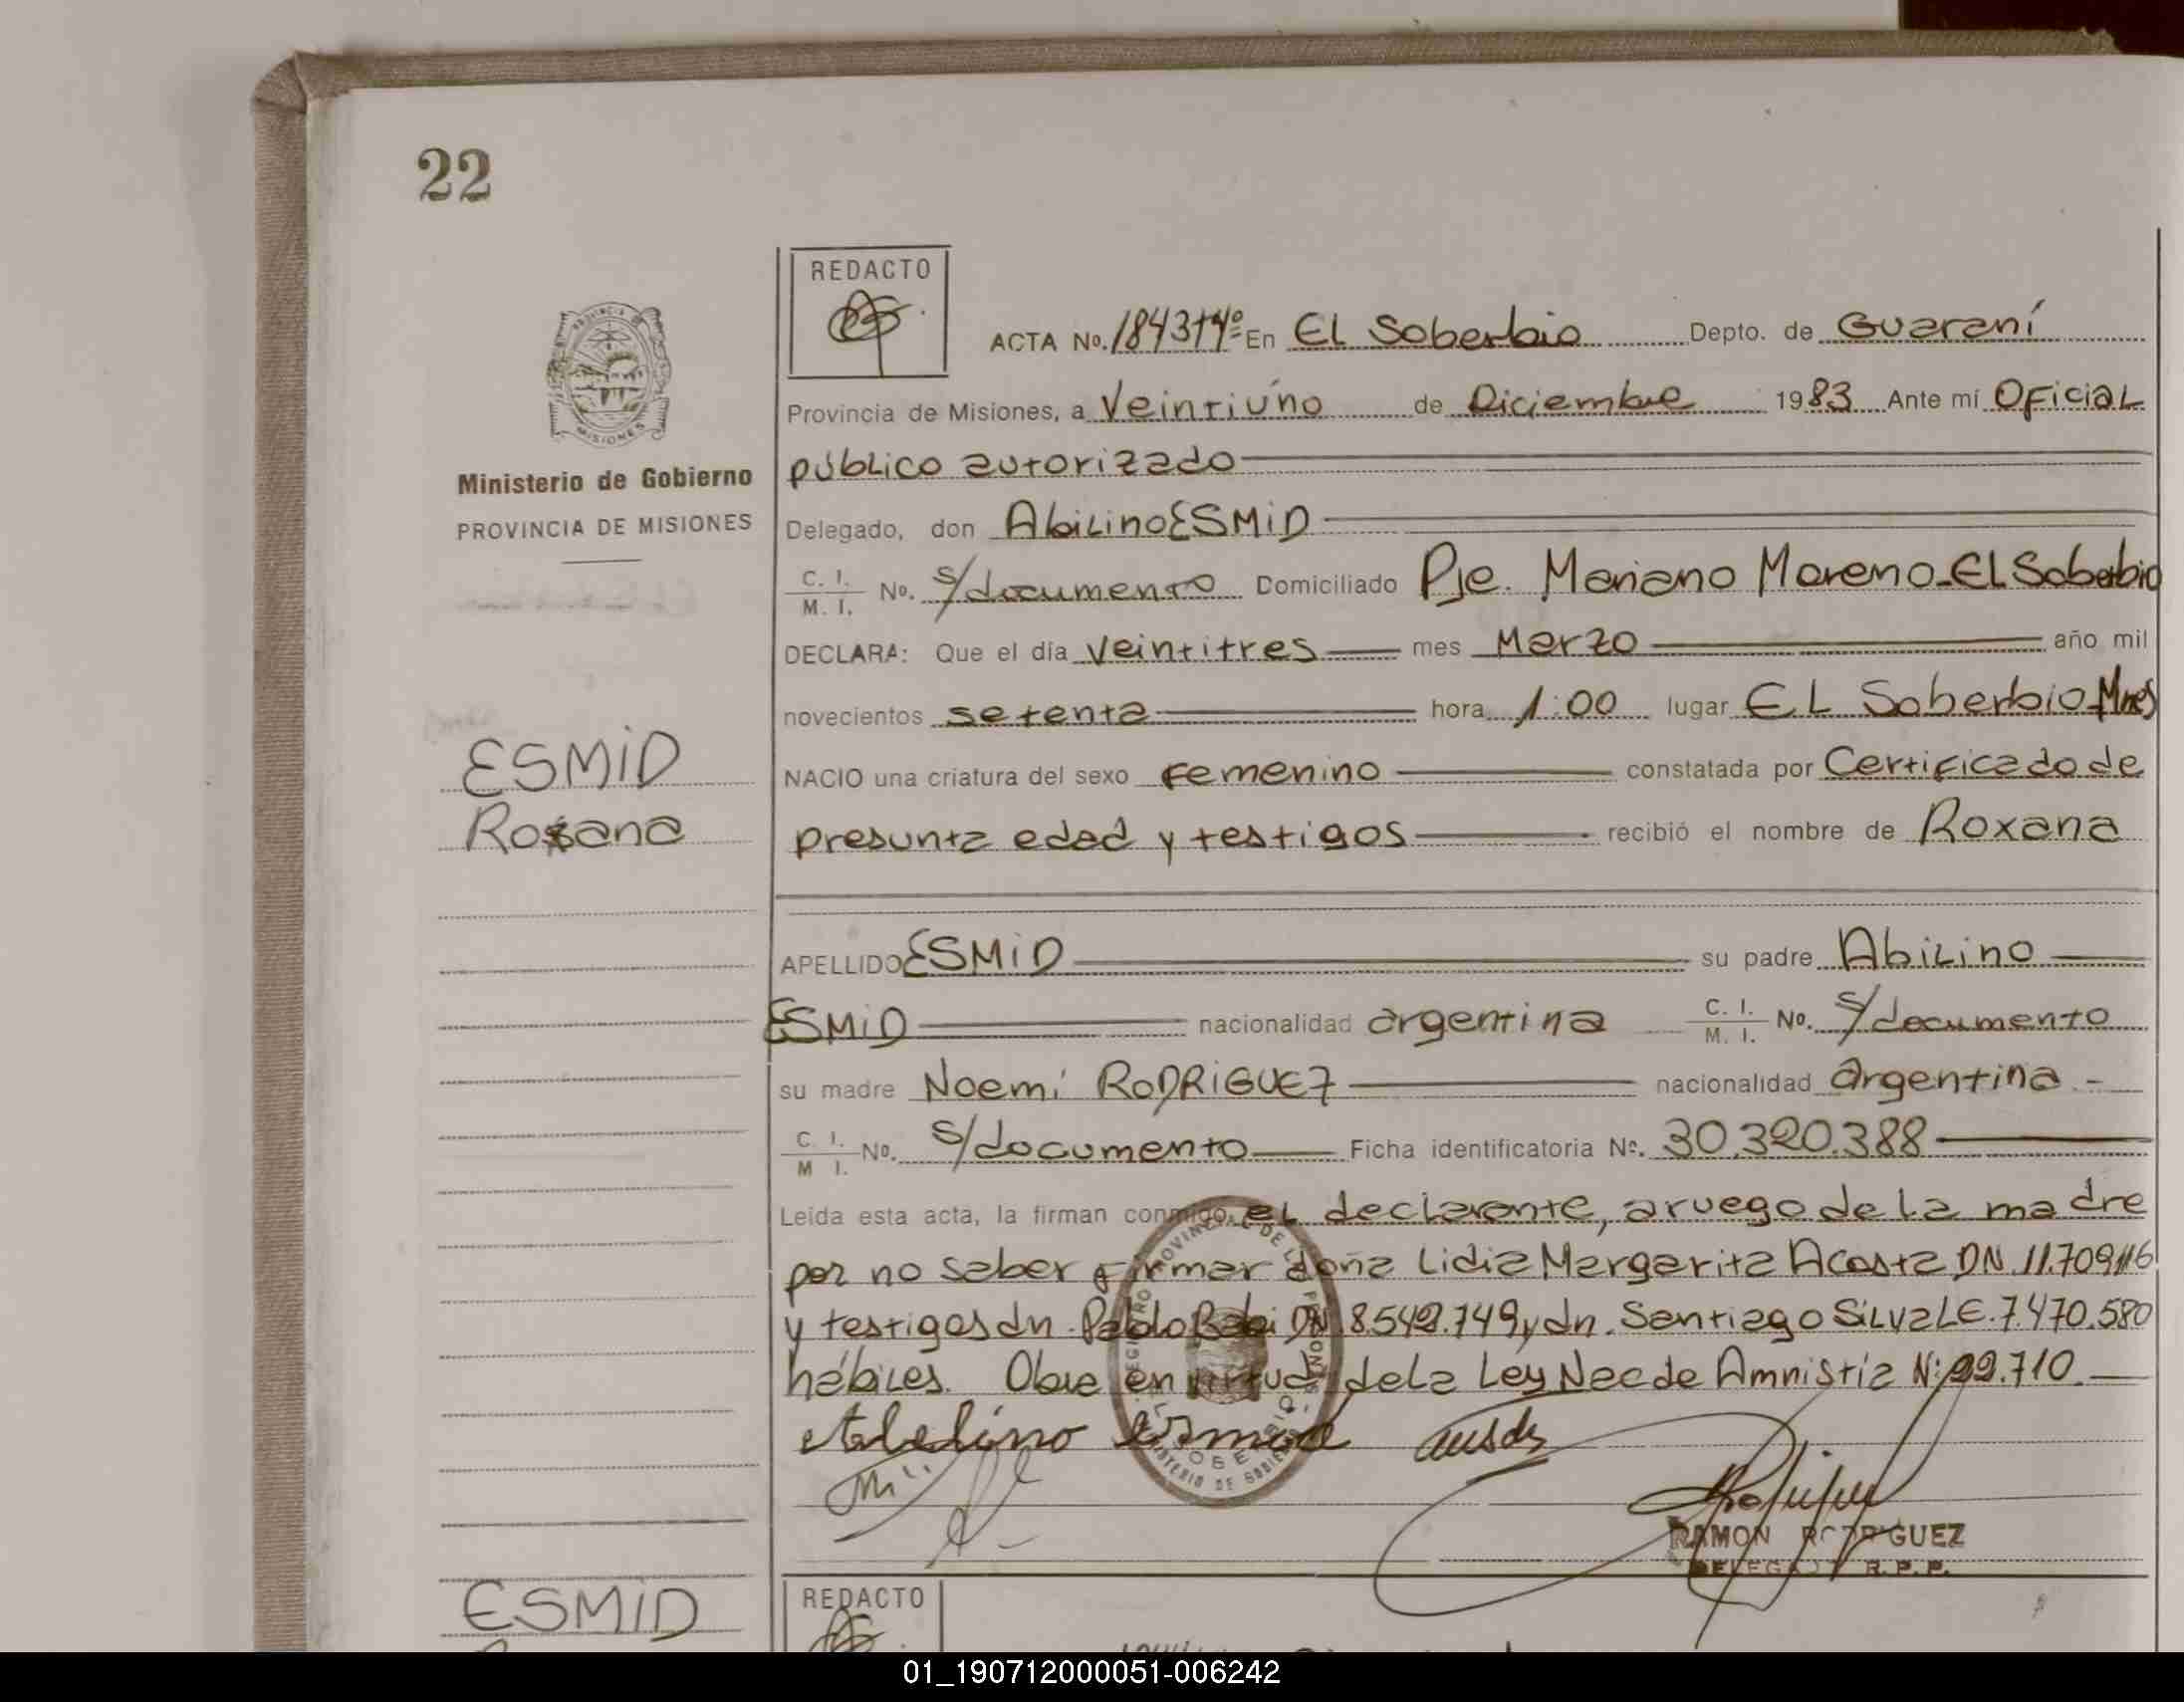 22
REDACTO
ACTA No. 1843 t4º En El Soberbio Depto. de Guaraní
Provincia de Misiones, a Veintiúno de Diciembre 1983 Ante mí Oficial
público autorizado
Ministerio de Gobierno
PROVINCIA DE MISIONES
Delegado, don Abilino ESMID
C. I. M. I. No. s/documento Domiciliado Pje. Mariano Moreno - El Soberbio
DECLARA: Que el día veintitres mes Marzo año mil
novecientos setenta hora 1:00 lugar EL Soberbio Mnes
ESMID
NACIO una criatura del sexo femenino constatada por Certificado de
Roxana
presunta edad y testigos recibió el nombre de Roxana
APELLIDO ESMID su padre Abilino
ESMID nacionalidad argentina C. I. M. I. No. s/documento
su madre Noemí RODRIGUEZ nacionalidad argentina -
C. I. M I. No. s/documento Ficha identificatoria No. 30.320.388
Leída esta acta, la firman conmigo, el declarante, a ruego de la madre
por no saber firmar doña Lidia Margarita Acosta DN. 11.709.116
y testigos dn. Pablo DN 8.542.749 y dn. Santiago Silva LE. 7.470.580
hábiles. Obre en virtud de la Ley Nac de Amnistía N: 22.710
RAMON RODRIGUEZ
DELEGADO R. P. P.
ESMID
REDACTO
01_190712000051-006242